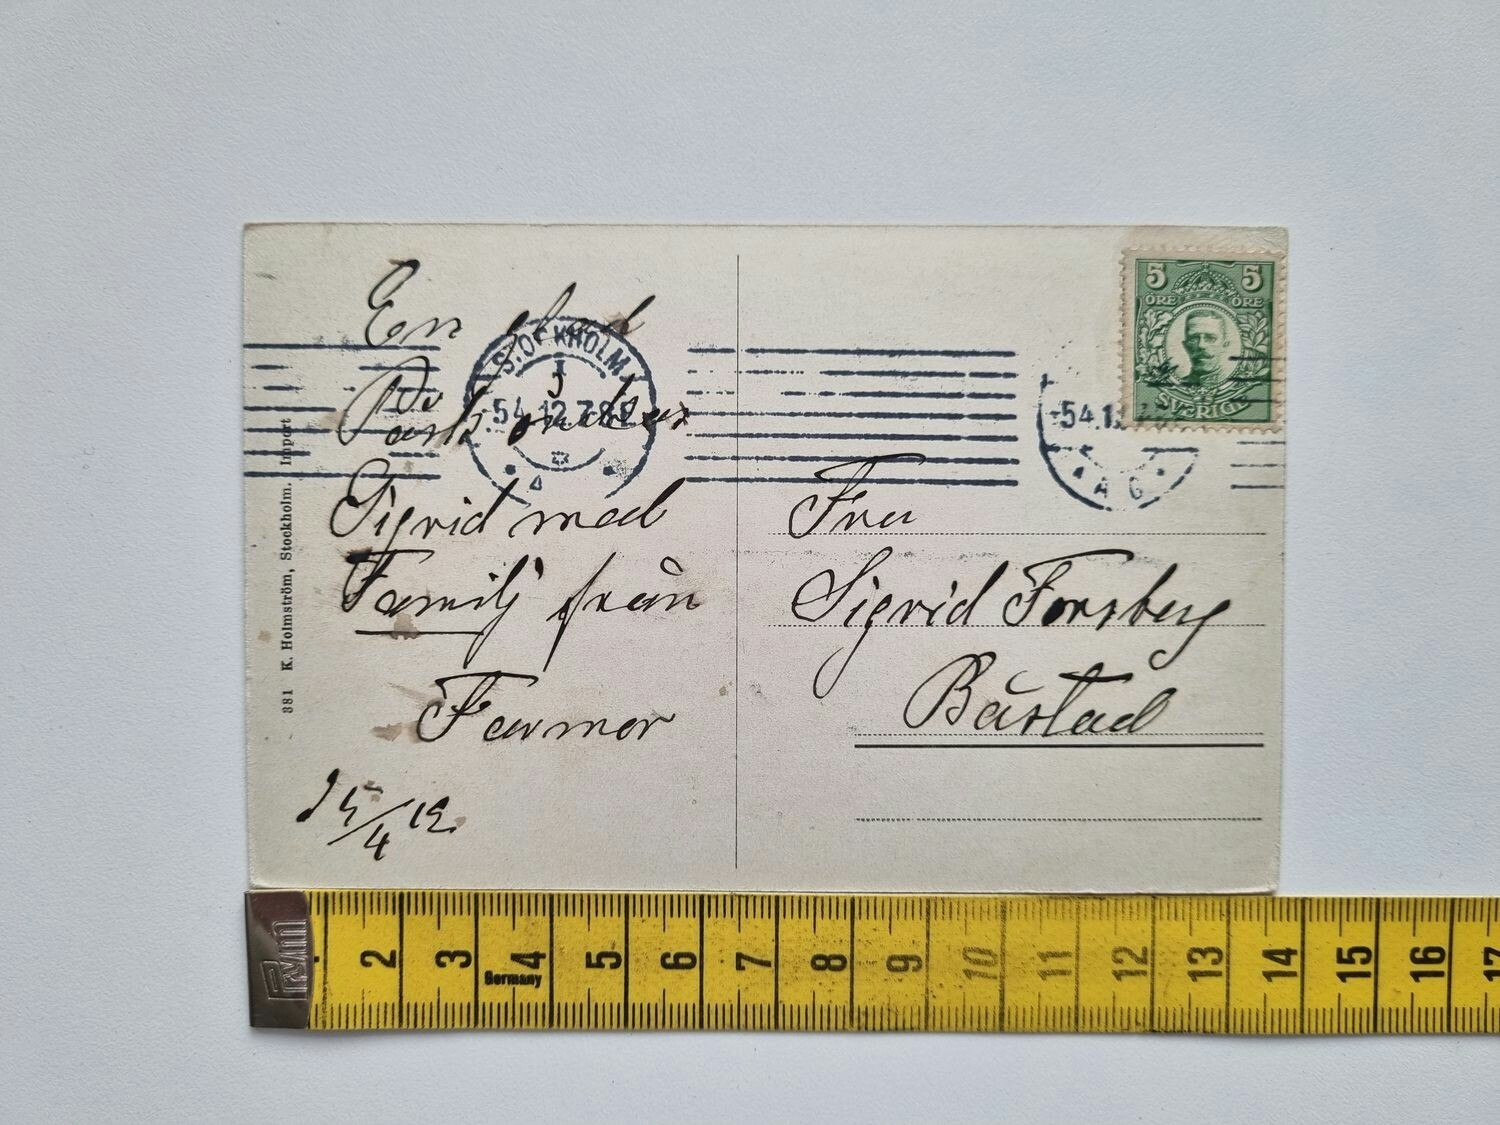 En glad
Påsk önskar
Sigrid med
Familj från
Farmor
5/4 12
381 K. Holmström, Stockholm. Import
STOCKHOLM 1
5 4. 12. 7-8 E
5 ÖRE 5 ÖRE
SVERIGE
5 4 1
A G
Fru
Sigrid Forsberg
Båstad
2 3 4 5 6 7 8 9 10 11 12 13 14 15 16 17
Germany
Prym